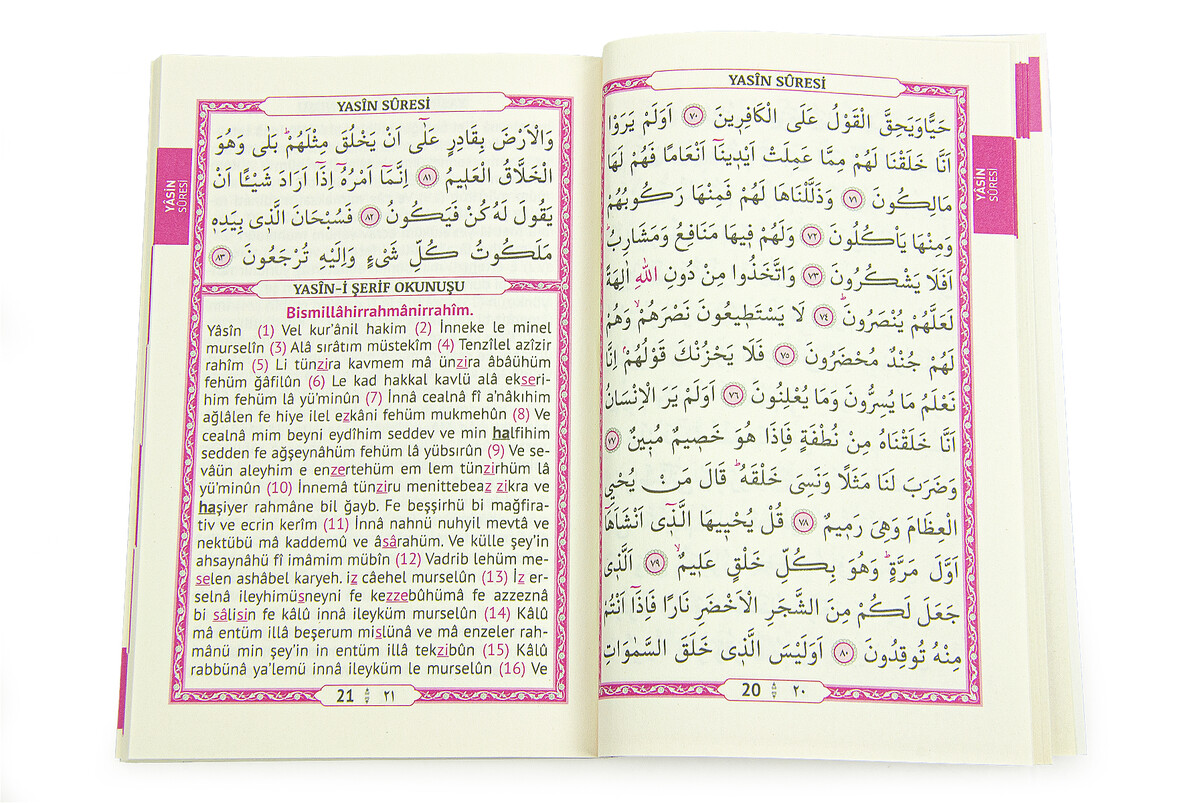 YASİN SÛRESİ
حَيًّا وَيَحِقَّ الْقَوْلُ عَلَى الْكَافِرٖينَ ﴿٧٠﴾ اَوَلَمْ يَرَوْا
اَنَّا خَلَقْنَا لَهُمْ مِمَّا عَمِلَتْ اَيْدٖينَٓا اَنْعَامًا فَهُمْ لَهَا
مَالِكُونَ ﴿٧١﴾ وَذَلَّلْنَاهَا لَهُمْ فَمِنْهَا رَكُوبُهُمْ
وَمِنْهَا يَأْكُلُونَ ﴿٧٢﴾ وَلَهُمْ فٖيهَا مَنَافِعُ وَمَشَارِبُ
اَفَلَا يَشْكُرُونَ ﴿٧٣﴾ وَاتَّخَذُوا مِنْ دُونِ اللّٰهِ اٰلِهَةً
لَعَلَّهُمْ يُنْصَرُونَ ﴿٧٤﴾ لَا يَسْتَطٖيعُونَ نَصْرَهُمْۙ وَهُمْ
لَهُمْ جُنْدٌ مُحْضَرُونَ ﴿٧٥﴾ فَلَا يَحْزُنْكَ قَوْلُهُمْۢ اِنَّا
نَعْلَمُ مَا يُسِرُّونَ وَمَا يُعْلِنُونَ ﴿٧٦﴾ اَوَلَمْ يَرَ الْاِنْسَانُ
اَنَّا خَلَقْنَاهُ مِنْ نُطْفَةٍ فَاِذَا هُوَ خَصٖيمٌ مُبٖينٌ ﴿٧٧﴾
وَضَرَبَ لَنَا مَثَلًا وَنَسِىَ خَلْقَهُۜ قَالَ مَنْ يُحْيِى
الْعِظَامَ وَهِىَ رَمٖيمٌ ﴿٧٨﴾ قُلْ يُحْيٖيهَا الَّذٖٓى اَنْشَاَهَٓا
اَوَّلَ مَرَّةٍۜ وَهُوَ بِكُلِّ خَلْقٍ عَلٖيمٌۙ ﴿٧٩﴾ اَلَّذٖى
جَعَلَ لَكُمْ مِنَ الشَّجَرِ الْاَخْضَرِ نَارًا فَاِذَٓا اَنْتُمْ
مِنْهُ تُوقِدُونَ ﴿٨٠﴾ اَوَلَيْسَ الَّذٖى خَلَقَ السَّمٰوَاتِ
20 ٢٠
YÂSİN
SÛRESİ
YASÎN SÛRESİ
وَالْاَرْضَ بِقَادِرٍ عَلٰٓى اَنْ يَخْلُقَ مِثْلَهُمْۜ بَلٰى وَهُوَ
الْخَلَّاقُ الْعَلٖيمُ ﴿٨١﴾ اِنَّمَٓا اَمْرُهُٓ اِذَٓا اَرَادَ شَيْـًٔا اَنْ
يَقُولَ لَهُ كُنْ فَيَكُونُ ﴿٨٢﴾ فَسُبْحَانَ الَّذٖى بِيَدِهٖ
مَلَكُوتُ كُلِّ شَىْءٍ وَاِلَيْهِ تُرْجَعُونَ ﴿٨٣﴾
YASÎN-İ ŞERİF OKUNUŞU
Bismillâhirrahmânirrahîm.
Yâsîn (1) Vel kur’ânil hakim (2) İnneke le minel
murselîn (3) Alâ sırâtım müstekîm (4) Tenzîlel azîzir
rahîm (5) Li tünzira kavmem mâ ünzira âbâühüm
fehüm ğâfilûn (6) Le kad hakkal kavlü alâ ekseri-
him fehüm lâ yü’minûn (7) İnnâ cealnâ fî a’nâkıhim
ağlâlen fe hiye ilel ezkâni fehüm mukmehûn (8) Ve
cealnâ mim beyni eydîhim seddev ve min halfihim
sedden fe ağşeynâhüm fehüm lâ yübsırûn (9) Ve se-
vâün aleyhim e enzertehüm em lem tünzirhüm lâ
yü’minûn (10) İnnemâ tünziru menittebeaz zikra ve
haşiyer rahmâne bil ğayb. Fe beşşirhü bi mağfira-
tiv ve ecrin kerîm (11) İnnâ nahnü nuhyil mevtâ ve
nektübü mâ kaddemû ve âsârahüm. Ve külle şey’in
ahsaynâhü fî imâmim mübîn (12) Vadrib lehüm me-
selen ashâbel karyeh. iz câehel murselûn (13) İz er-
selnâ ileyhimüsneyni fe kezzebûhümâ fe azzeznâ
bi sâlisin fe kâlû innâ ileyküm murselûn (14) Kâlû
mâ entüm illâ beşerum mislünâ ve mâ enzeler rah-
mânü min şey’in in entüm illâ tekzibûn (15) Kâlû
rabbünâ ya’lemü innâ ileyküm le murselûn (16) Ve
21 ٢١
YÂSİN
SÛRESİ